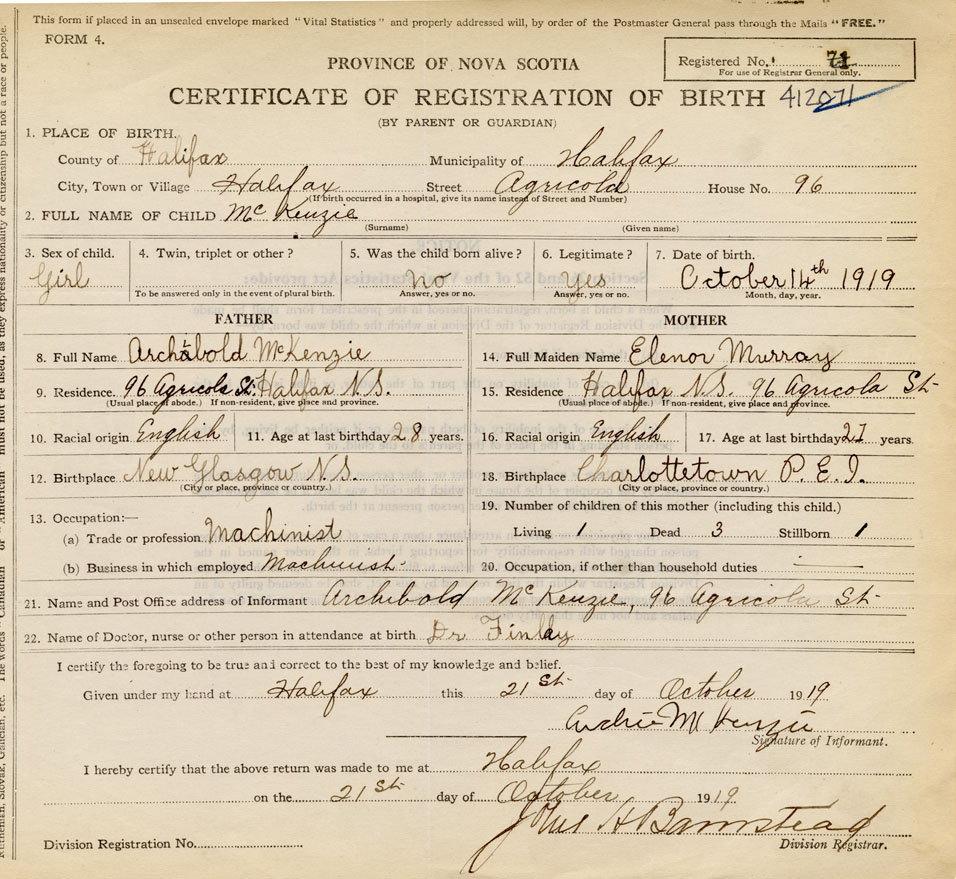 This form if placed in an unsealed envelope marked "Vital Statistics" and properly addressed will, by order of the Postmaster General pass through the Mails "FREE."
FORM 4.
Registered No. 71
For use of Registrar General only.
PROVINCE OF NOVA SCOTIA
CERTIFICATE OF REGISTRATION OF BIRTH 412071
(BY PARENT OR GUARDIAN)
1. PLACE OF BIRTH.
County of Halifax Municipality of Halifax
City, Town or Village Halifax Street Agricola House No. 96
(If birth occurred in a hospital, give its name instead of Street and Number)
2. FULL NAME OF CHILD McKenzie
(Surname) (Given name)
3. Sex of child. Girl
4. Twin, triplet or other?
To be answered only in the event of plural birth.
5. Was the child born alive? no
Answer, yes or no.
6. Legitimate? Yes
Answer, yes or no.
7. Date of birth. October 14th 1919
Month, day, year.
FATHER
8. Full Name Archibold McKenzie
9. Residence. 96 Agricola St. Halifax N.S.
(Usual place of abode.) If non-resident, give place and province.
10. Racial origin English 11. Age at last birthday 28 years.
12. Birthplace New Glasgow N.S.
(City or place, province or country.)
13. Occupation:—
(a) Trade or profession Machinist
(b) Business in which employed Machinist
MOTHER
14. Full Maiden Name Elenor Murray
15. Residence Halifax N.S. 96 Agricola St
(Usual place of abode.) If non-resident, give place and province.
16. Racial origin English 17. Age at last birthday 27 years.
18. Birthplace Charlottetown P.E.I.
(City or place, province or country.)
19. Number of children of this mother (including this child.)
Living 1 Dead 3 Stillborn 1
20. Occupation, if other than household duties
21. Name and Post Office address of Informant Archibold McKenzie, 96 Agricola St
22. Name of Doctor, nurse or other person in attendance at birth Dr Finlay
I certify the foregoing to be true and correct to the best of my knowledge and belief.
Given under my hand at Halifax this 21st day of October 1919
Archie McKenzie
Signature of Informant.
I hereby certify that the above return was made to me at Halifax
on the 21st day of October 1919.
John H Barnstead
Division Registration No. Division Registrar.